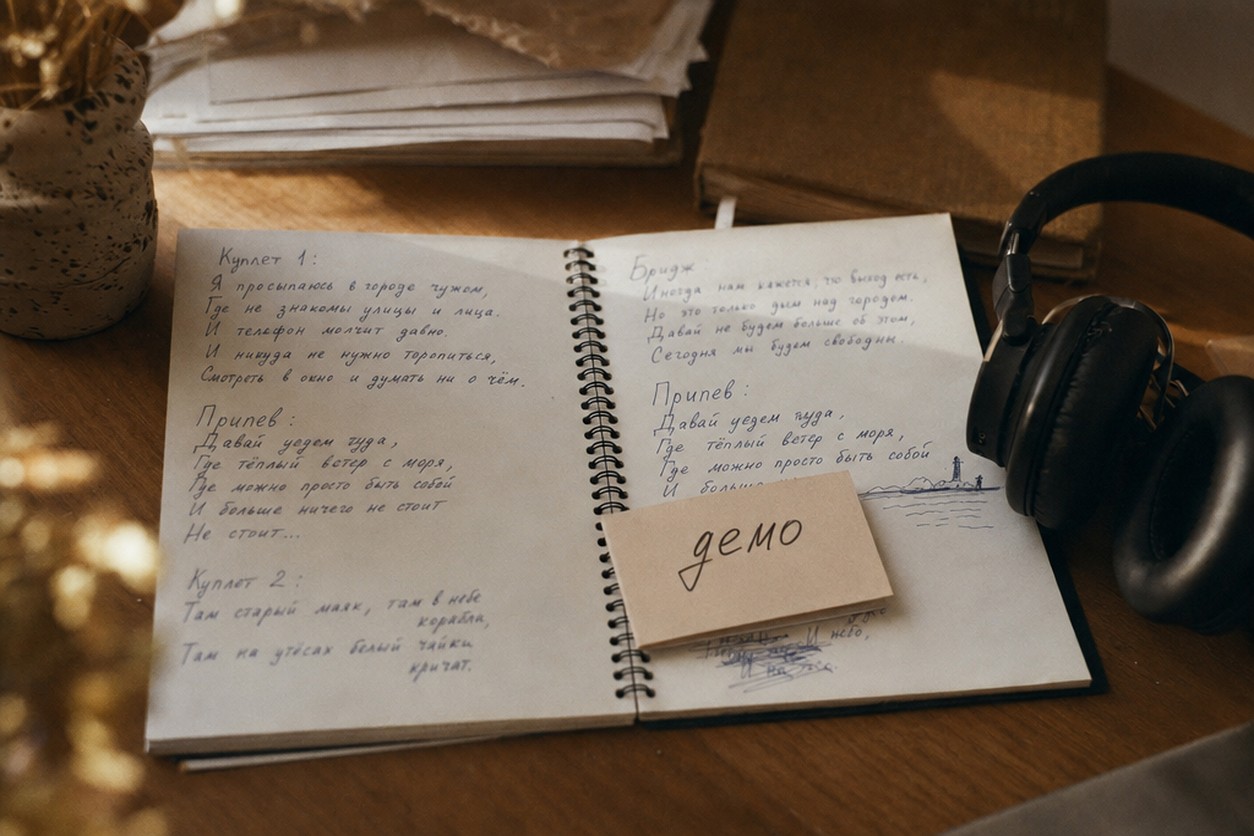 Куплет 1:
Я просыпаюсь в городе чужом,
Где не знакомы улицы и лица.
И телефон молчит давно.
И никуда не нужно торопиться,
Смотреть в окно и думать ни о чём.
Припев:
Давай уедем туда,
Где тёплый ветер с моря,
Где можно просто быть собой
И больше ничего не стоит
Не стоит...
Куплет 2:
Там старый маяк, там в небе
корабла,
Там на утёсах белый чайки
кричат.
Бридж
Иногда нам кажется, что выход есть,
Но это только дым над городом.
Давай не будем больше об этом,
Сегодня мы будем свободны.
Припев:
Давай уедем туда,
Где тёплый ветер с моря,
Где можно просто быть собой
И больше
демо
И небо,